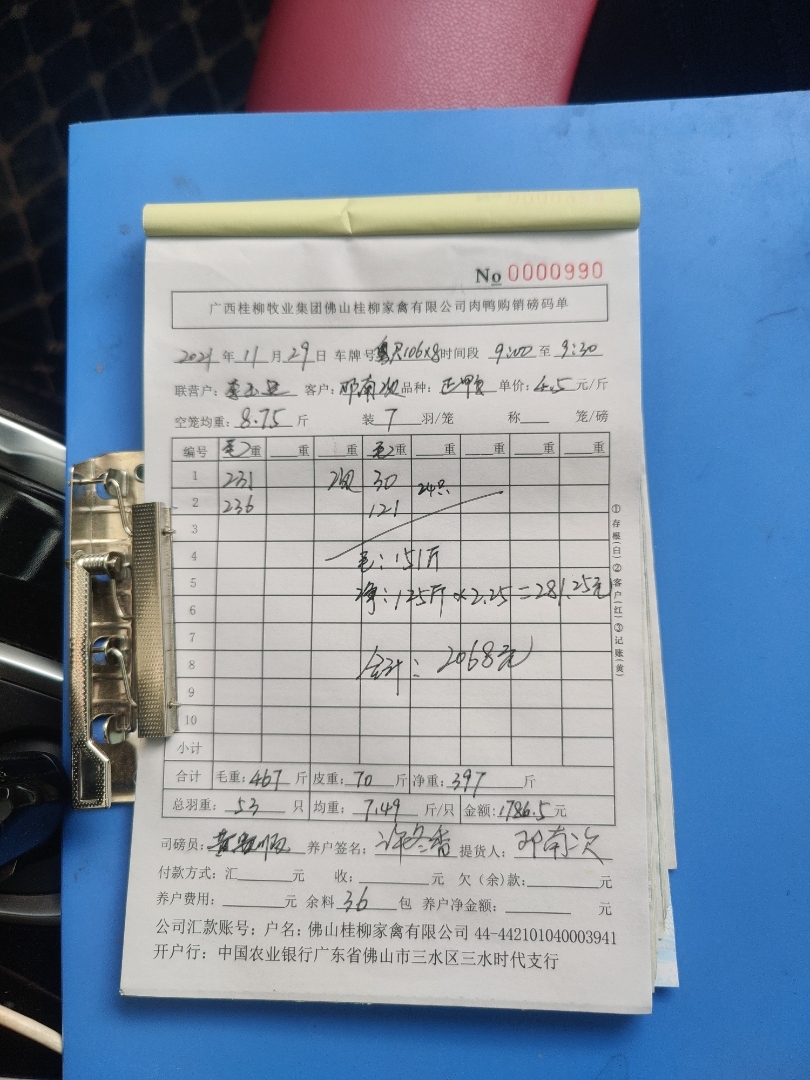 No 0000990
广西桂柳牧业集团佛山桂柳家禽有限公司肉鸭购销磅码单
2021年11月29日 车牌号 106X8 时间段 9:00 至 9:30
联营户: 客户:邓南次 品种: 单价:4.5元/斤
空笼均重:8.75斤 装7羽/笼 称 笼/磅
编号 毛重 重 重 毛重 重 重 重 重
1 231 30 24只
2 236 121
3
4 毛:151斤
5 净:125斤×2.25=281.25元
6
7
8 合计:2068元
9
10
小计
合计 毛重:467斤 皮重:70斤 净重:397斤
总羽重:53只 均重:7.49斤/只 金额:1786.5元
司磅员: 养户签名: 提货人:邓南次
付款方式:汇 元 收: 元 欠(余)款: 元
养户费用: 元 余料36包 养户净金额: 元
公司汇款账号;户名:佛山桂柳家禽有限公司 44-442101040003941
开户行:中国农业银行广东省佛山市三水区三水时代支行
①存根(白)②客户(红)③记账(黄)